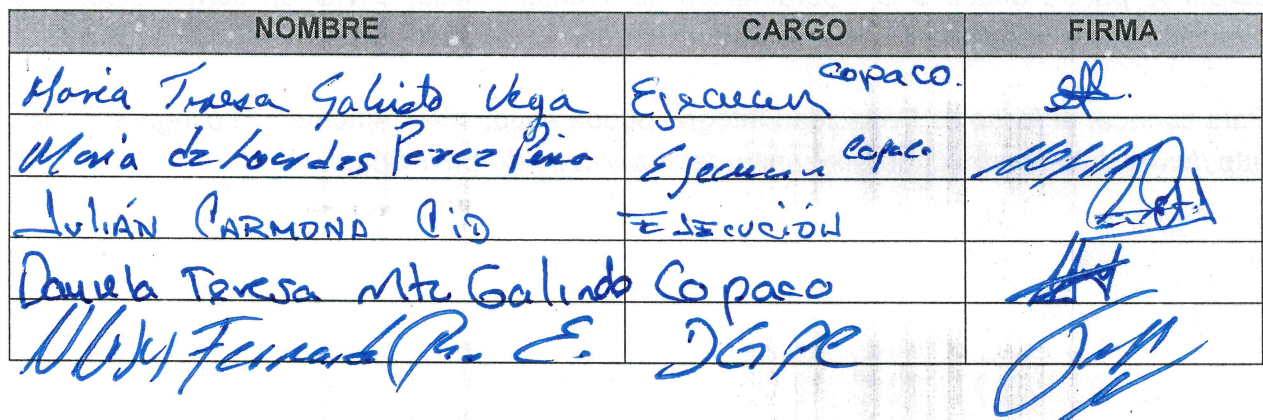 NOMBRE CARGO FIRMA
Maria Teresa Galindo Vega Ejecucion copaco.
Maria de Lourdes Perez Pino Ejecucion Copaco
JULIÁN CARMONA CID EJECUCIÓN
Daniela Teresa Mtz Galindo Copaco
Fernando E. DGPC